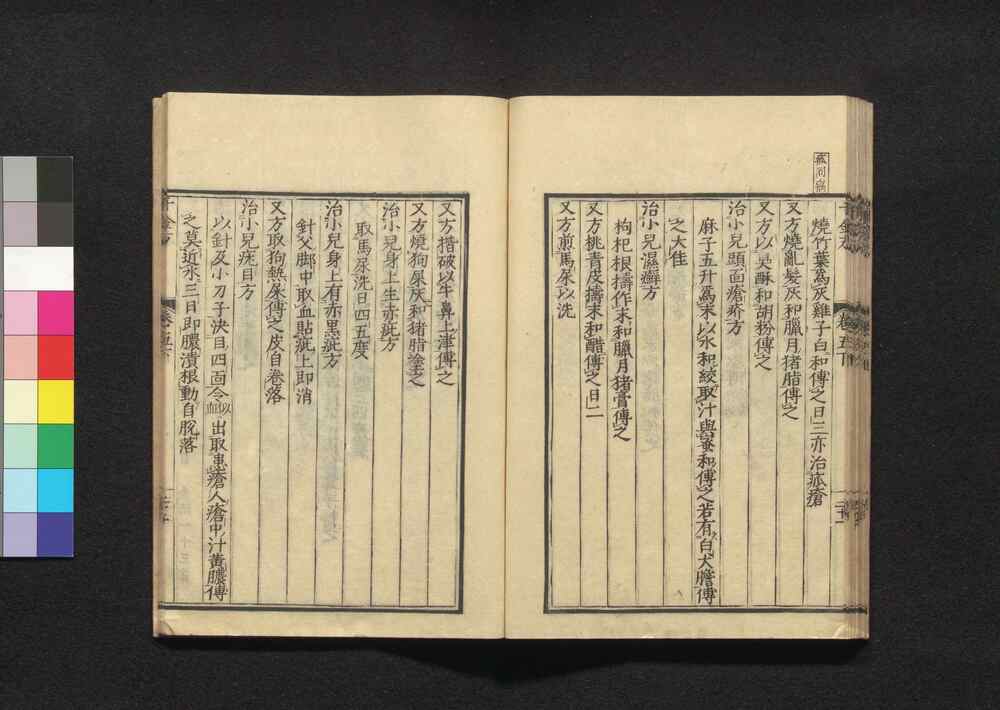 燒竹葉為灰雞子白和傅之日三亦治疳瘡
又方燒亂髮灰和臘月猪脂傅之
又方以吴酥和胡粉傅之
治小兒頭面瘡疥方
麻子五升為末以水和絞取汁與蜜和傅之若有白犬膽傅
之大佳
治小兒濕癬方
枸杞根擣作末和臘月猪膏傅之
又方桃青皮擣末和醋傅之日二
又方煎馬尿以洗
又方揩破以牛鼻上津傅之
又方燒狗屎灰和猪脂塗之
治小兒身上生赤疵方
取馬尿洗日四五度
治小兒身上有赤黒疵方
針父脚中取血貼疵上即消
又方取狗熱屎傅之皮自卷落
治小兒疣目方
以針及小刀子決目四面令似血出取患瘡人瘡中汁黄膿傅
之莫近水三日即膿潰根動自脫落
千金方
卷五下